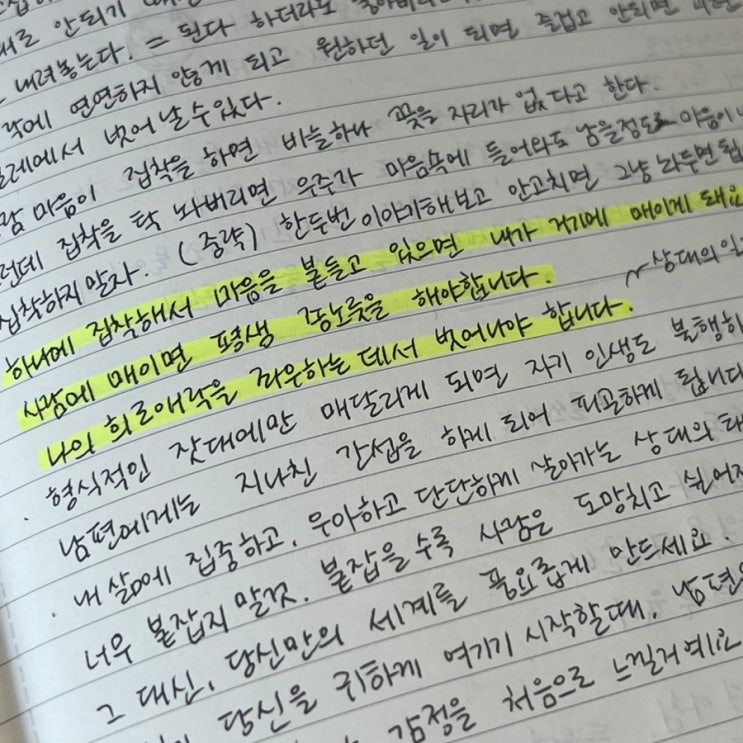 대로 안되기
내려놓는다. = 된다 하더라도
락에 연연하지 않게 되고 원하던 일이 되면 즐겁고 안되면
굴레에서 벗어날 수 있다.
사람 마음이 집착을 하면 바늘하나 꽂을 자리가 없다고 한다.
그런데 집착을 탁 놔버리면 우주가 마음속에 들어와도 남을정도로 마음이
집착하지 말자. (중략) 한두번 이야기해보고 안고치면 그냥 놔두면 됩
하나에 집착해서 마음을 붙들고 있으면 내가 거기에 매이게 돼요
사람에 매이면 평생 종노릇을 해야합니다. ~상대의
나의 희로애락을 좌우하는 데서 벗어나야 합니다.
· 형식적인 잣대에만 매달리게 되면 자기 인생도 불행히
남편에게는 지나친 간섭을 하게 되어 피곤하게 됩니다
· 내 삶에 집중하고, 우아하고 단단하게 살아가는 상대의 태
너무 붙잡지 말것. 붙잡을수록 사람은 도망치고 싶어지
그 대신, 당신만의 세계를 풍요롭게 만드세요.
당신을 귀하게 여기기 시작할때, 남편
감정을 처음으로 느낄거예요